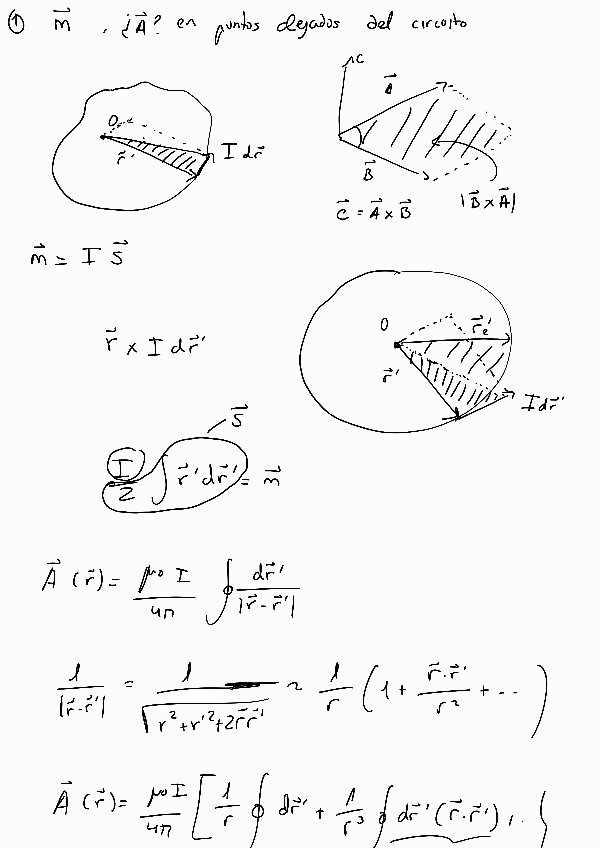 ① m⃗ , ¿A⃗? en puntos alejados del circuito
O
r⃗'
I dr⃗
C
A⃗
B⃗
C⃗ = A⃗ x B⃗
|B⃗ x A⃗|
m⃗ = I S⃗
r⃗ x I dr⃗'
O
r⃗₂'
r⃗'
I dr⃗'
S⃗
I/2 ∫ r⃗' dr⃗' = m⃗
A⃗ (r⃗) = μo I / 4π ∮ dr⃗' / |r⃗-r⃗'|
1 / |r⃗-r⃗'| = 1 / √(r² + r'² + 2r⃗r⃗') ~ 1/r (1 + r⃗·r⃗' / r² + ··· )
A⃗ (r⃗) = μo I / 4π [ 1/r ∮ dr⃗' + 1/r³ ∮ dr⃗' (r⃗·r⃗') , · }